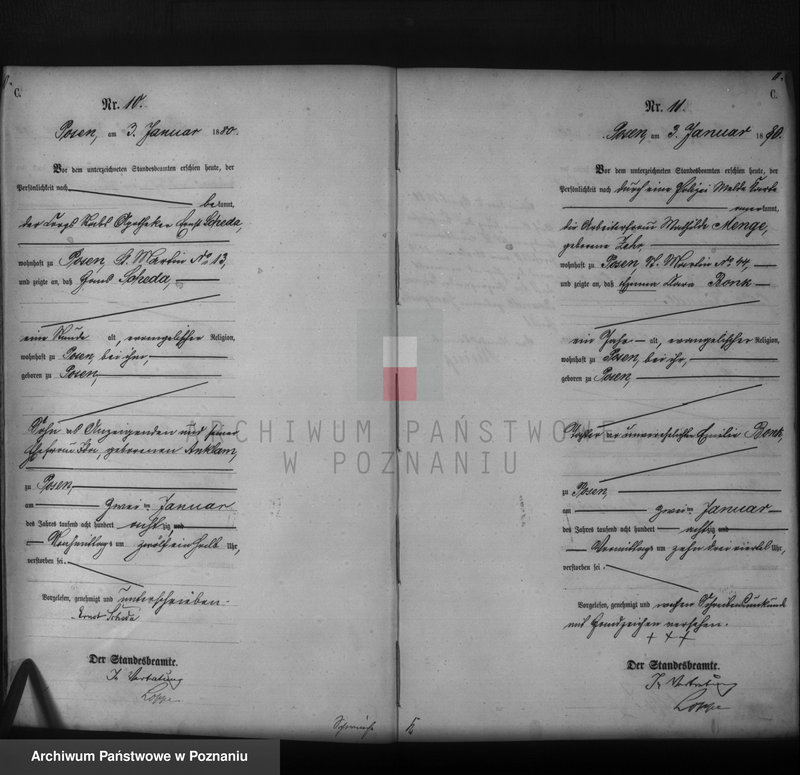 C.
Nr. 10.
Posen, am 3. Januar 1880.
Vor dem unterzeichneten Standesbeamten erschien heute, der
Persönlichkeit nach
bekannt,
der Apotheker Ernst Scheda,
wohnhaft zu Posen, St. Martin No 13,
und zeigte an, daß Hans Scheda,
eine Stunde alt, evangelischer Religion,
wohnhaft zu Posen, bei ihm,
geboren zu Posen,
Sohn des Anzeigenden und seiner
Ehefrau Ida, geborenen Anklam,
zu Posen,
am zwei ten Januar
des Jahres tausend acht hundert achtzig und
Nachmittags um zwölf ein halb Uhr,
verstorben sei.
Vorgelesen, genehmigt und unterschrieben.
Ernst Scheda
Der Standesbeamte.
In Vertretung
11.
C.
Nr. 11.
Posen, am 3. Januar 1880.
Vor dem unterzeichneten Standesbeamten erschien heute, der
Persönlichkeit nach durch eine Polizei Melde Karte
anerkannt,
die Arbeiterfrau Mathilde Menge,
geborene Zehr,
wohnhaft zu Posen, St. Martin No 44,
und zeigte an, daß Emma Clara Bonk
ein Jahr alt, evangelischer Religion,
wohnhaft zu Posen, bei ihr,
geboren zu Posen,
Tochter der unverehelichten Emilie Bonk,
zu Posen,
am zwei ten Januar
des Jahres tausend acht hundert achtzig und
Vormittags um zehn drei viertel Uhr,
verstorben sei.
Vorgelesen, genehmigt und wegen Schreibensunkunde
mit Handzeichen versehen.
+ + +
Der Standesbeamte.
In Vertretung
ARCHIWUM PAŃSTWOWE
W POZNANIU
Archiwum Państwowe w Poznaniu